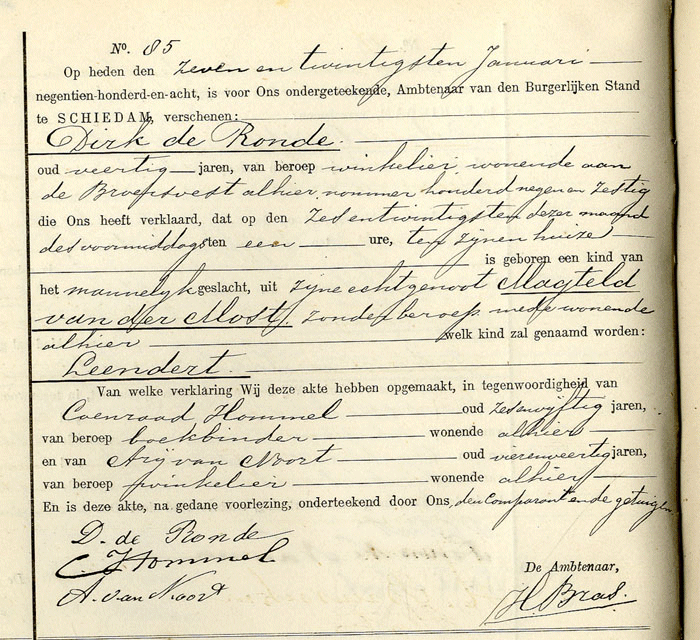 No. 85
Op heden den zeven en twintigsten Januari
negentien-honderd-en-acht, is voor Ons ondergeteekende, Ambtenaar van den Burgerlijken Stand
te SCHIEDAM, verschenen:
Dirk de Ronde.
oud veertig jaren, van beroep winkelier, wonende aan
de Broersvest alhier nommer honderd negen en zestig
die Ons heeft verklaard, dat op den zes en twintigsten dezer maand
des voormiddags ten een ure, ten zijnen huize
is geboren een kind van
het mannelijk geslacht, uit zijne echtgenoot Magteld
van der Most, zonder beroep mede wonende
alhier welk kind zal genaamd worden:
Leendert.
Van welke verklaring Wij deze akte hebben opgemaakt, in tegenwoordigheid van
Coenraad Hommel oud zesenvijftig jaren,
van beroep boekbinder wonende alhier
en van Arij van Noort oud vierenveertig jaren,
van beroep winkelier wonende alhier
En is deze akte, na gedane voorlezing, onderteekend door Ons, den comparant en de getuigen
D. de Ronde
C Hommel
A. van Noort
De Ambtenaar,
H. Bras.